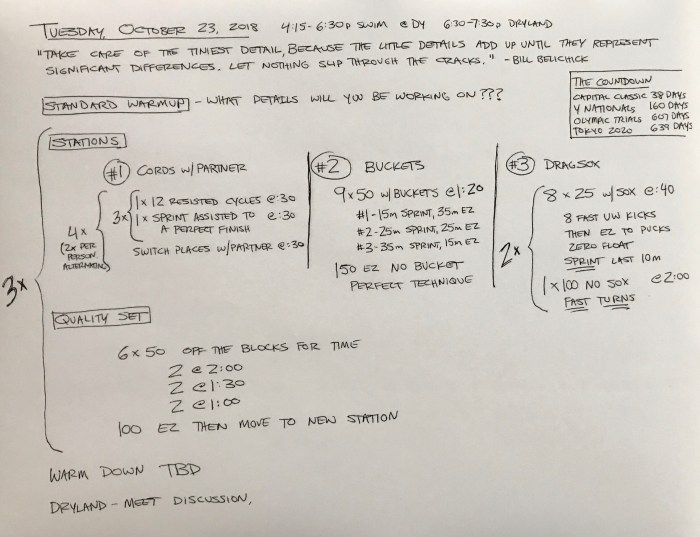 TUESDAY, OCTOBER 23, 2018 4:15-6:30P SWIM @ DY 6:30-7:30P DRYLAND
"TAKE CARE OF THE TINIEST DETAIL, BECAUSE THE LITTLE DETAILS ADD UP UNTIL THEY REPRESENT
SIGNIFICANT DIFFERENCES. LET NOTHING SLIP THROUGH THE CRACKS." - BILL BELICHICK
THE COUNTDOWN
CAPITAL CLASSIC 38 DAYS
Y NATIONALS 160 DAYS
OLYMPIC TRIALS 607 DAYS
TOKYO 2020 639 DAYS
STANDARD WARMUP - WHAT DETAILS WILL YOU BE WORKING ON???
3x
STATIONS
#1 CORDS W/PARTNER
4x
(2x PER
PERSON,
ALTERNATING)
3x
1x 12 RESISTED CYCLES @:30
1x SPRINT ASSISTED TO @:30
A PERFECT FINISH
SWITCH PLACES W/PARTNER @:30
#2 BUCKETS
9x50 W/BUCKETS @1:20
#1-15m SPRINT, 35m EZ
#2-25m SPRINT, 25m EZ
#3-35m SPRINT, 15m EZ
150 EZ NO BUCKET
PERFECT TECHNIQUE
#3 DRAGSOX
2x
8 x 25 W/SOX @:40
8 FAST UW KICKS
THEN EZ TO PUCKS
ZERO FLOAT
SPRINT LAST 10m
1x100 NO SOX @2:00
FAST TURNS
QUALITY SET
6x50 OFF THE BLOCKS FOR TIME
2 @ 2:00
2 @1:30
2 @1:00
100 EZ THEN MOVE TO NEW STATION
WARM DOWN TBD
DRYLAND - MEET DISCUSSION,